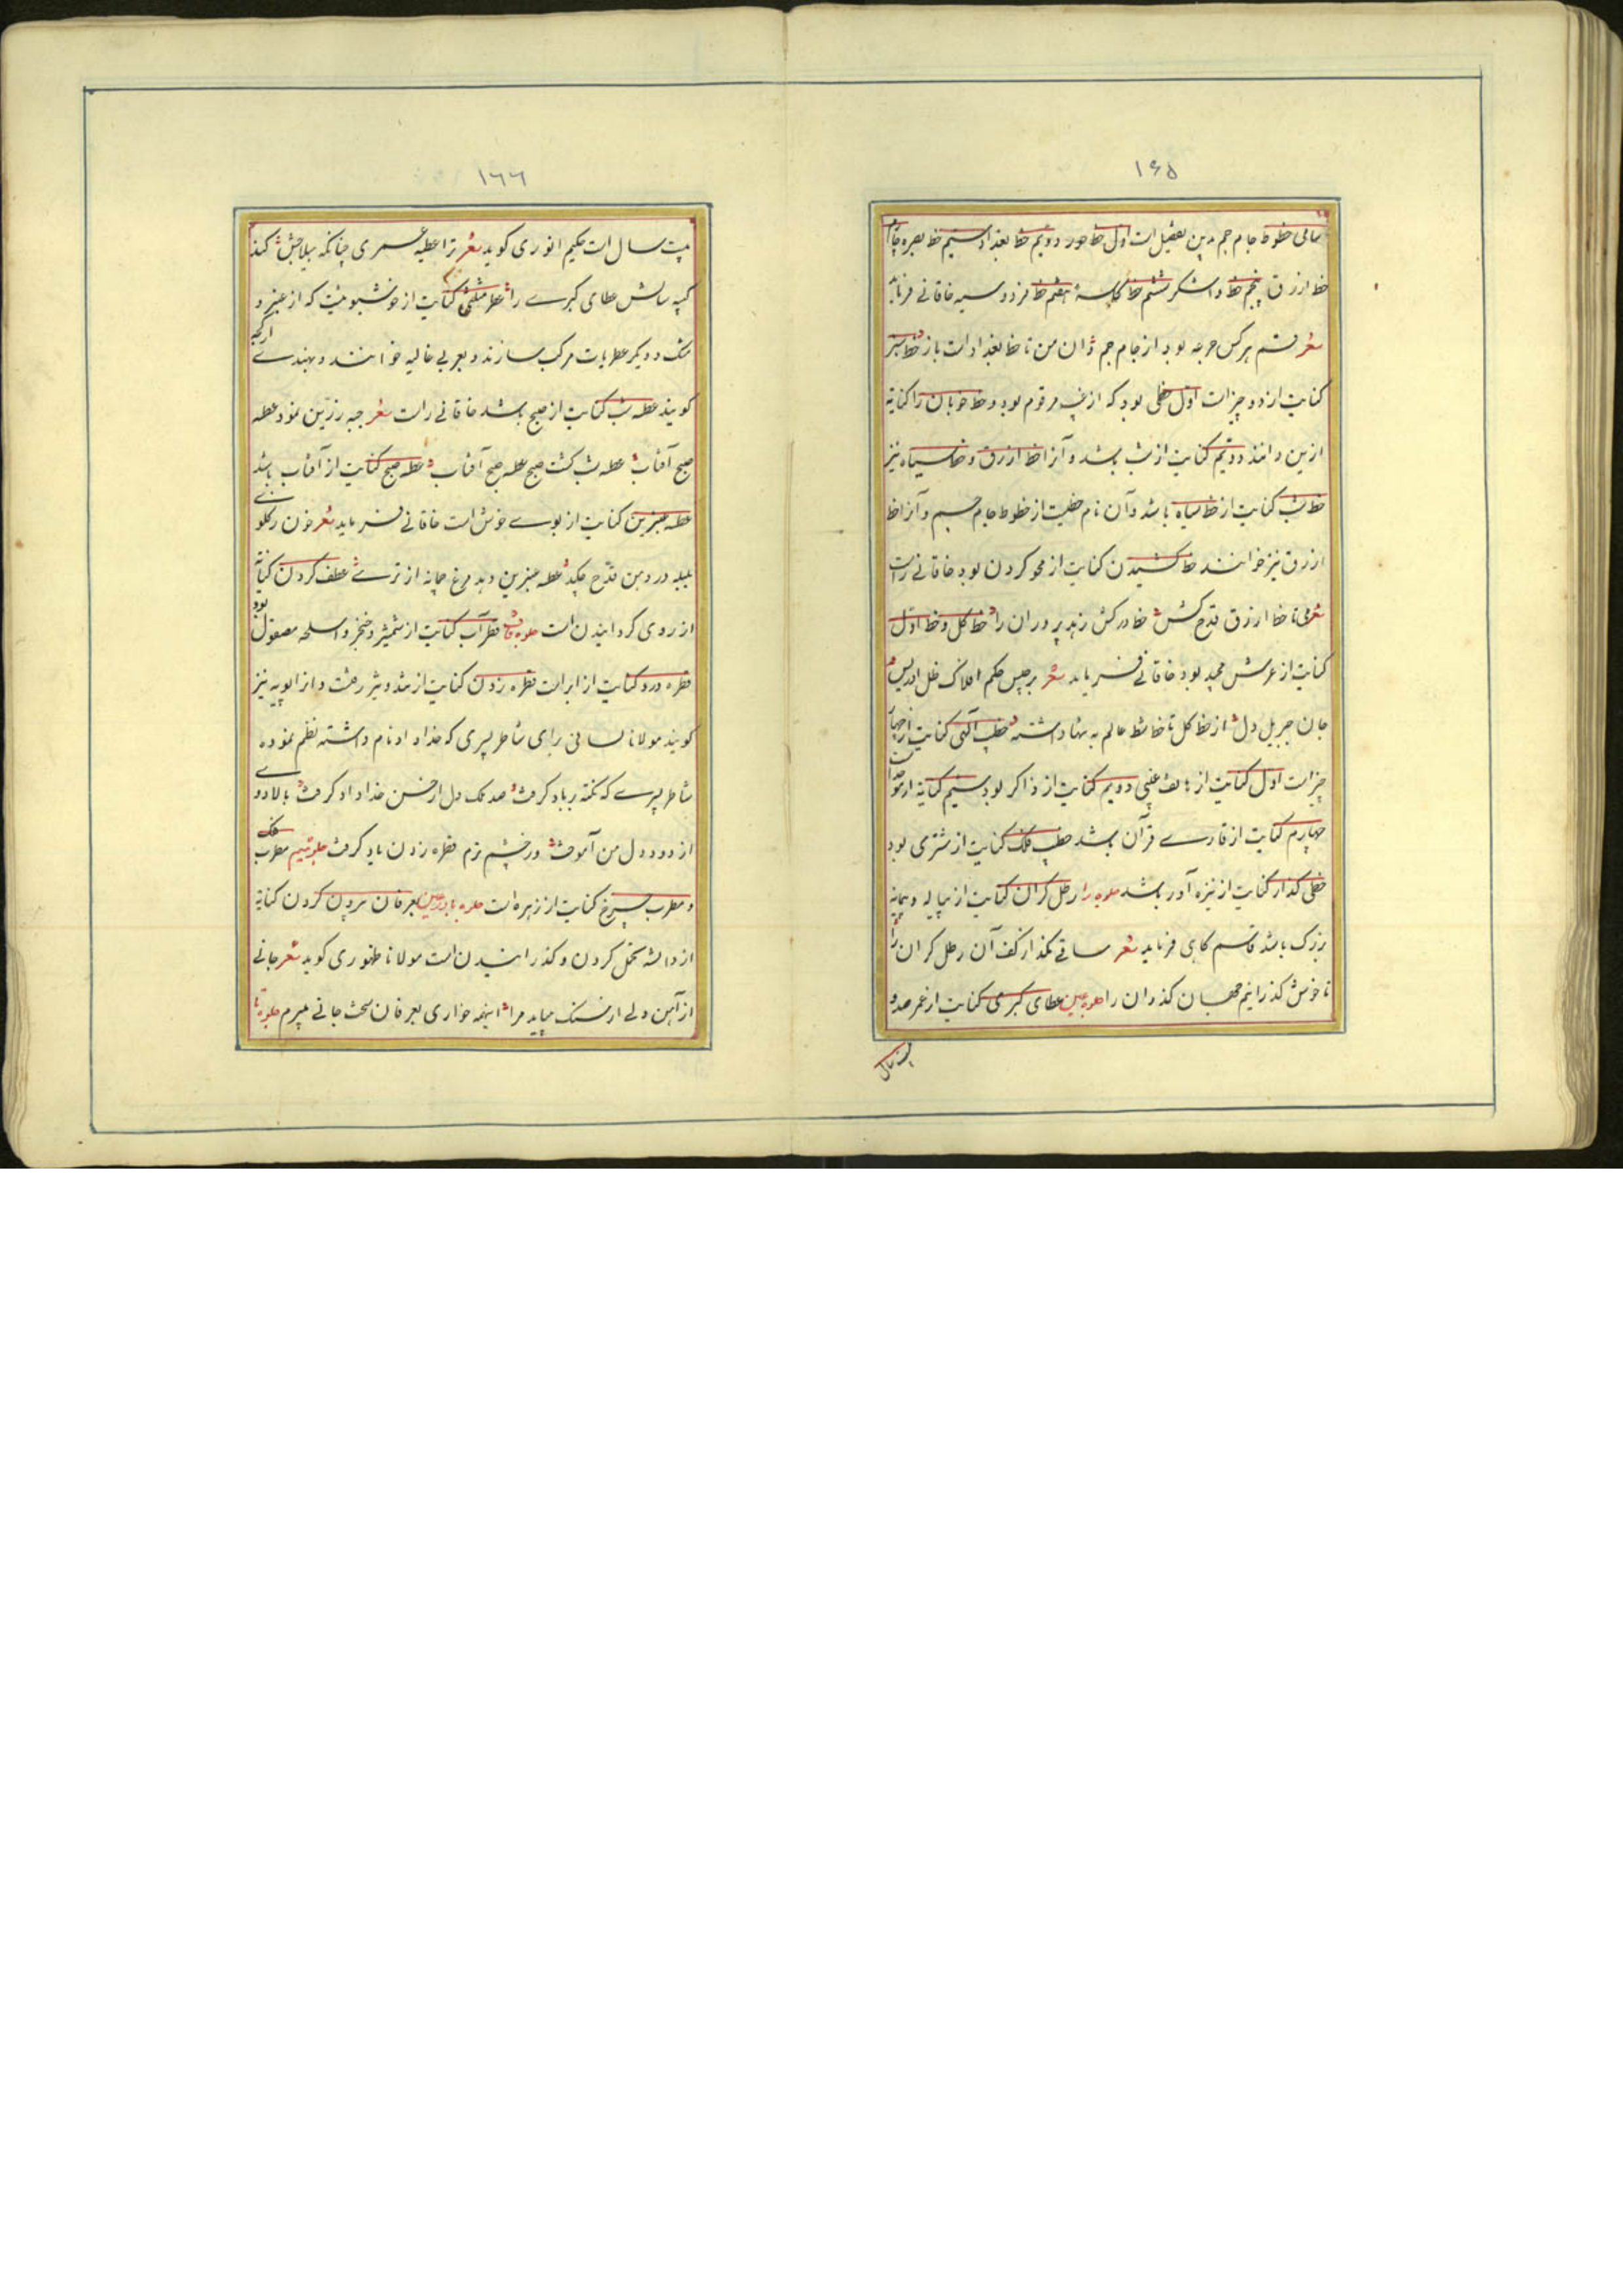 ۱۶۵
سامی خطوط جام جم بدین تفصیل است اول خط جور دویم خط بغداد سیم خط بصره چهارم
خط ازرق پنجم خط واشکر ششم خط کاسه هفتم خط فرودسیه خاقانی فرماید
شعر قسم هرکس جرعه بود از جام جم زان من تا خط بغداد است باز خط سبز
کنایت از دو چیز است اول خطی بود که از مرقوم بود و خط خوبان را کنایه
ازین دانند دویم کنایت از شب باشد و آنرا خط ازرق و خط سیاه نیز
خط شب کنایت از خط سیاه باشد و آن نام خطیست از خطوط جام جم و آنرا خط
ازرق نیز خوانند خط کشیدن کنایت از محو کردن بود خاقانی راست
شعر می تا خط ازرق قدح کش خط درکش زهد پروران را خط کل و خط اول
کنایت از عرش مجید بود خاقانی فرماید شعر برجیس حکم افلاک ظل ادریس
جان جبریل دل از خط کل تا خط عالم به تنها داشته خطیب الهی کنایت از چهار
چیز است اول کنایت از هاتف غیبی دویم کنایت از ذاکر بود سیم کنایه از موذن است
چهارم کنایت از قاری قرآن باشد خطیب فلک کنایت از مشتری بود
خطی گذار کنایت از نیزه آور باشد جلوه را رطل گران کنایت از پیاله و پیمانه
بزرک باشد قاسم کاهی فرماید شعر ساقی مگذار از کف آن رطل گران را
تا خوش گذرانیم جهان گذران را جلوه عین عطای کبری کنایت از عمر صد و
بیست سال
۱۶۶
بیست سال است حکیم انوری گوید شعر ترا عطیه عمری چنانکه بیلاجش کند
کمینه سالش عطای کبری را عطر مثلثی کنایت از خوشبوئیست که از عنبر و
مشک و دیگر عطریات مرکب سازند و بعربی غالیه خوانند و بهندی ارکجه
گویند عطسه شب کنایت از صبح باشد خاقانی راست شعر جبه زرین نمود عطسه
صبح آفتاب عطسه شب گشت صبح عطسه صبح آفتاب عطسه صبح کنایت از آفتاب باشد
عطسه عنبرین کنایت از بوی خوش است خاقانی فرماید شعر خون ز گلوی
بلبله در دهن قدح چکد عطسه عنبرین دهد مرغ چمانه از تری عطف کردن کنایه
از روی گردانیدن است جلوه قاف قطر آب کنایت از شمشیر و خنجر و اسلحه مصقول بود
قطره دزد کنایت از ابر است قطره زدن کنایت از تند و تیز رفتن و آنرا پویه نیز
گویند مولانا لسانی برای شاطر پسری که خداداد نام داشته نظم نموده
شاطر پسری که نکته بر باد گرفت صد ملک دل از حسن خداداد گرفت بالا دوی
از دود دل من آموخت ور چشم ترم قطره زدن یاد گرفت جلوه میم مطرب فلک
و مطرب چرخ کنایت از زهره است جلوه یا در عین عرفان بردن کردن کنایه
از دانسته تحمل کردن و گذرانیدن است مولانا ظهوری گوید شعر جانی
از آهن دلی از سنگ میباید مرا اینهمه خواری بعرفان سخت جانی میبرم جلوه تا